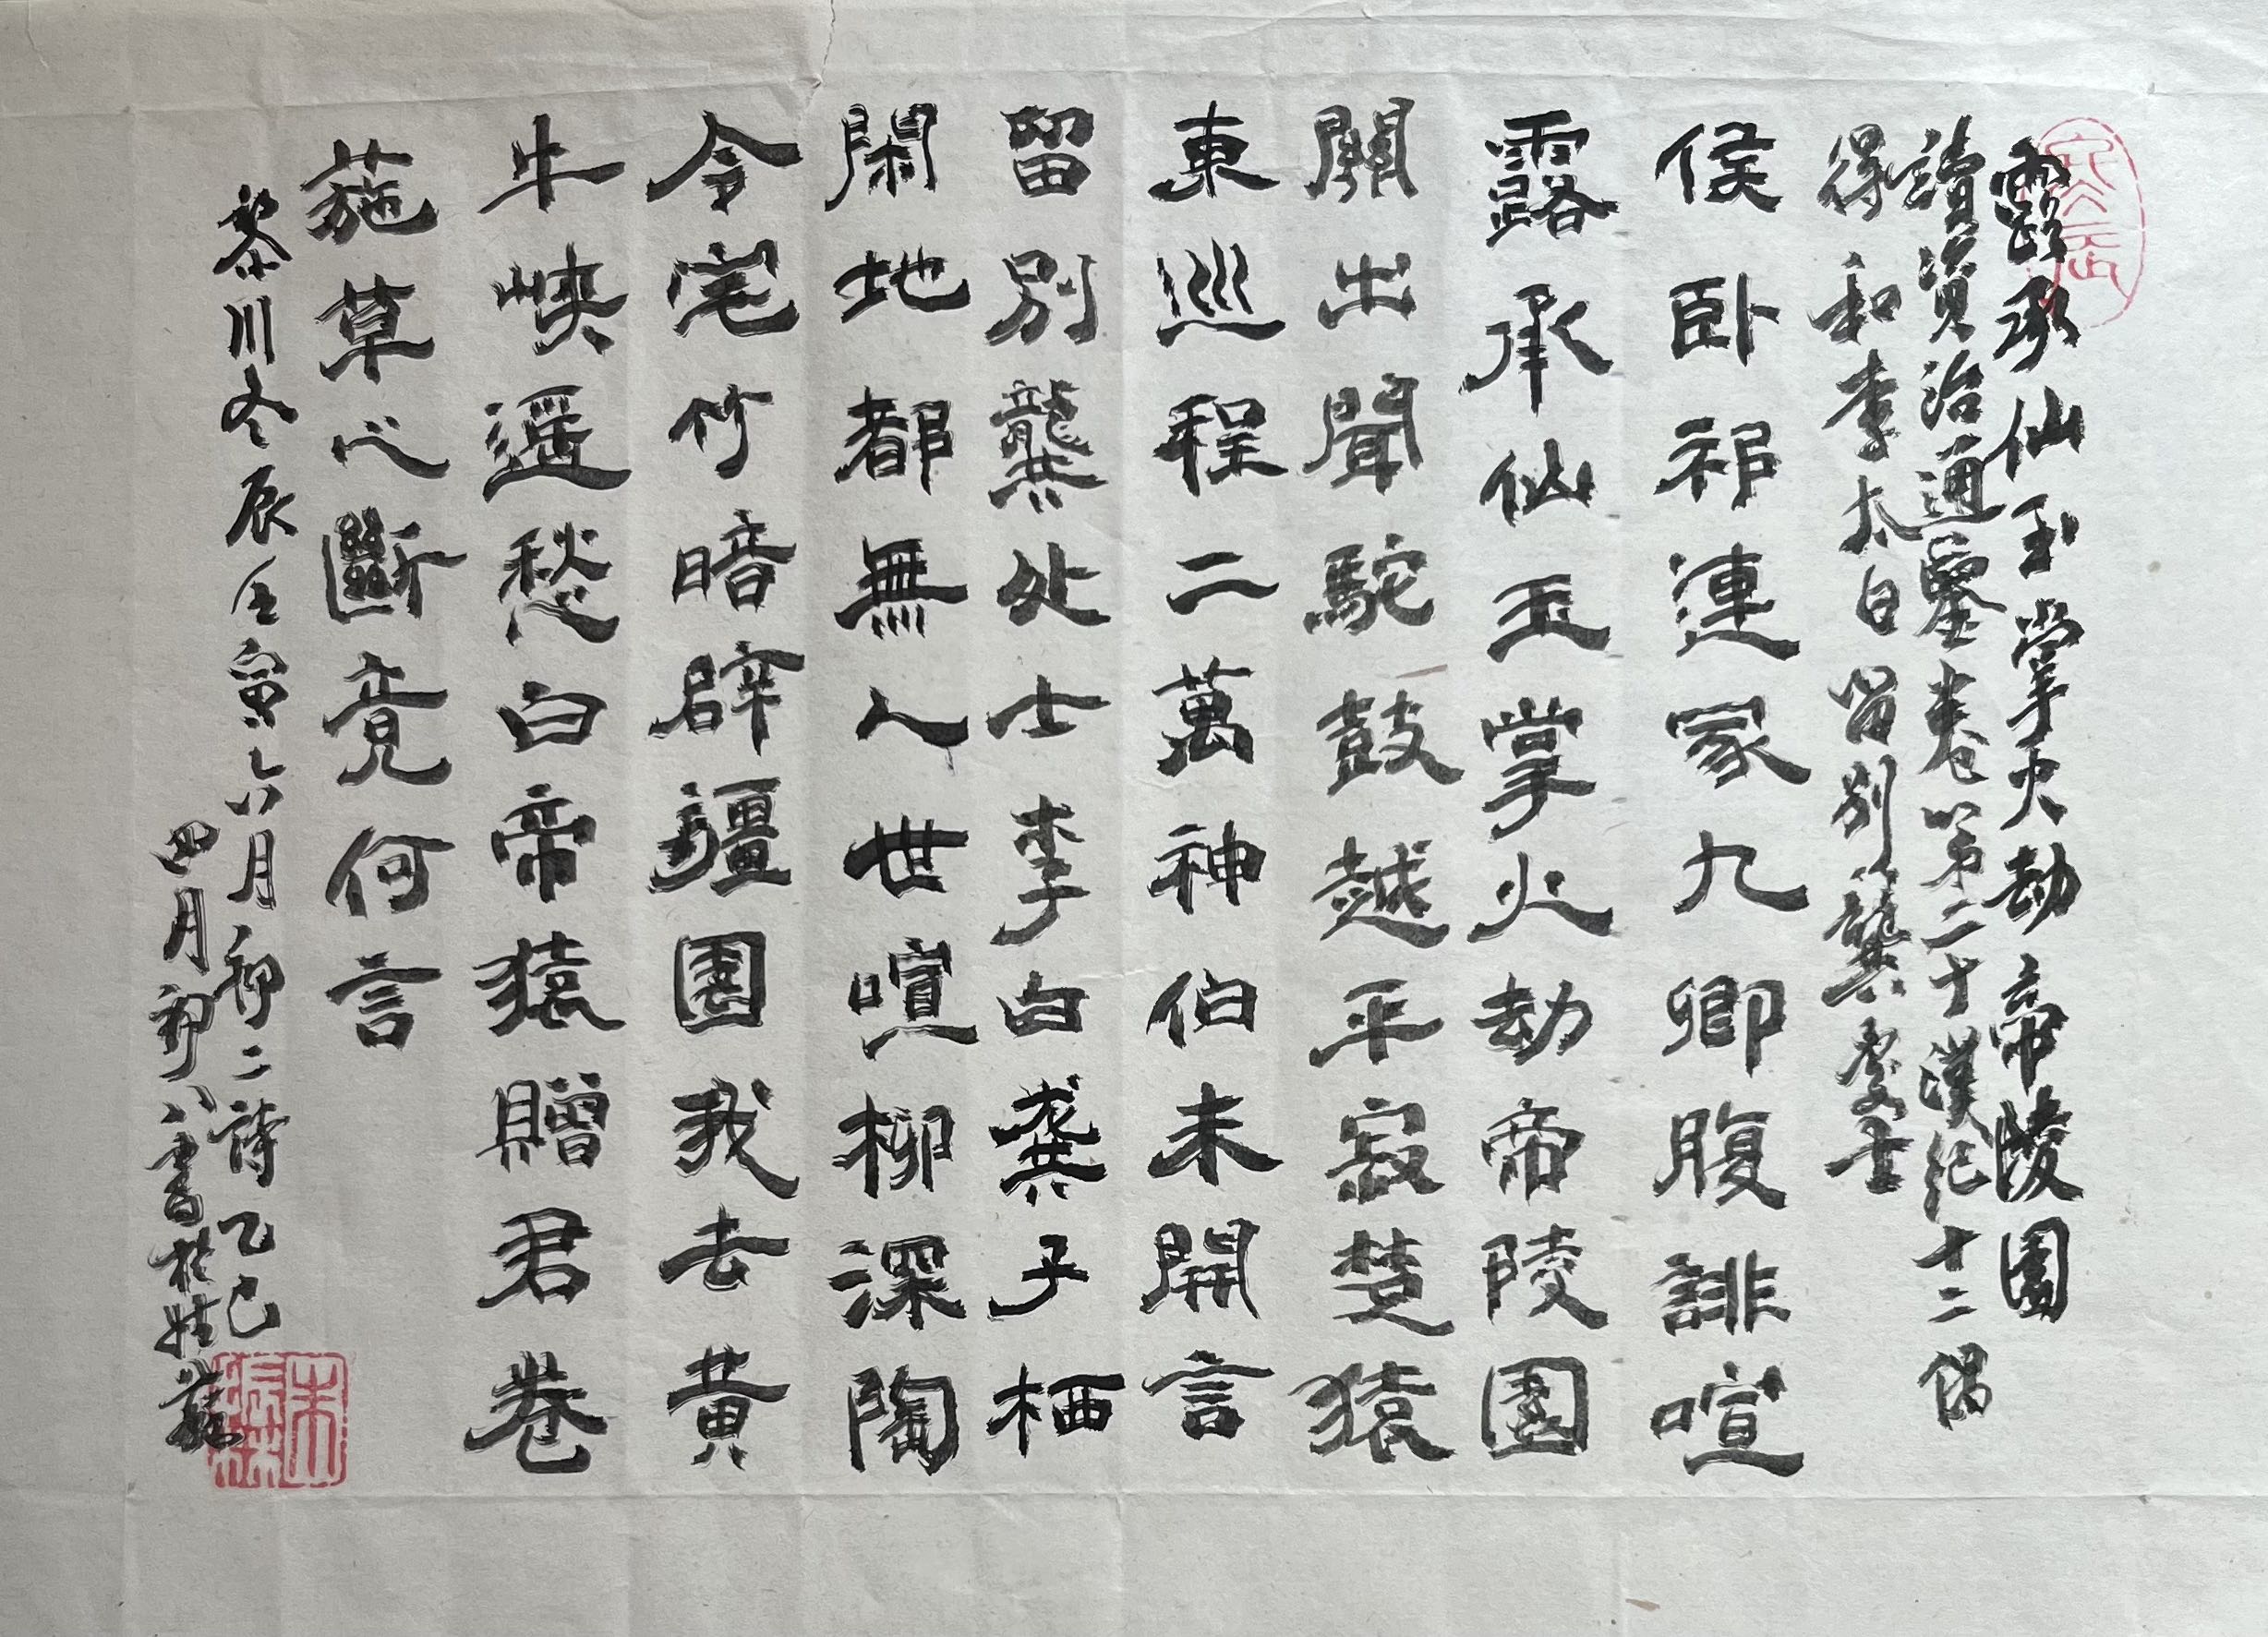 露承仙玉掌火劫帝陵園
讀資治通鑒卷第二十漢紀十二偶
得和李太白留別龔處士
侯卧祁連冢九卿腹誹喧
露承仙玉掌火劫帝陵園
關出聞駝鼓越平寂楚猿
東巡程二萬神伯未開言
留別龔处士李白龔子栖
閑地都無人世喧柳深陶
令宅竹暗辟疆園我去黃
牛峽遥愁白帝猿贈君卷
葹草心斷竟何言
黎川冬辰壬寅六月初二詩乙巳
四月初八書於姑蘇